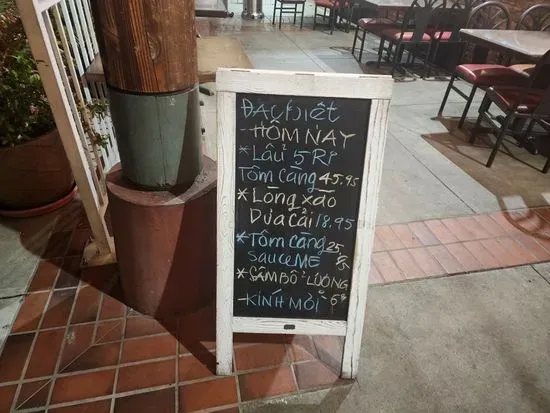 ĐẶC BIỆT
-HÔM NAY
*LẨU 5 RI
TÔM CÀNG 45.95
*LÒNG XÀO
DƯA CẢI 18.95
*TÔM CÀNG 25.95
SAUCE ME
*SÂM BỔ LƯỢNG
-KÍNH MỜI -6$